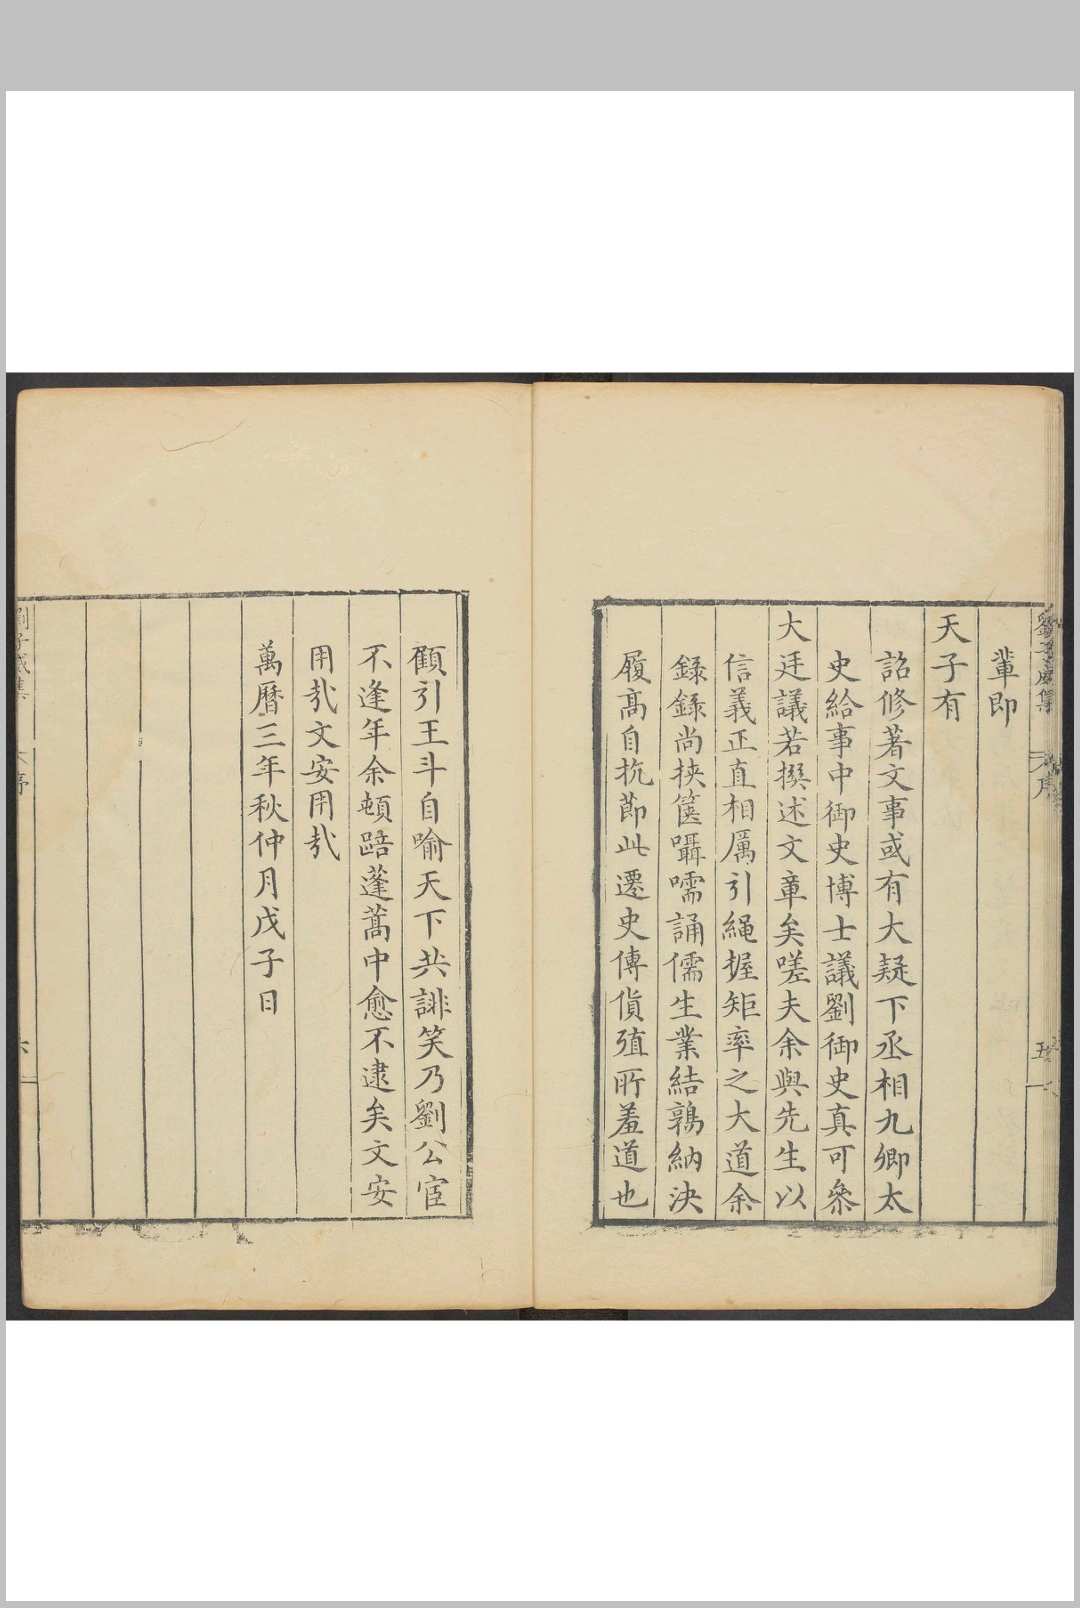 劉子威集
序
五
輩即
天子有
詔修著文事或有大疑下丞相九卿太
史給事中御史博士議劉御史真可叅
大廷議若撰述文章矣嗟夫余與先生以
信義正直相厲引繩握矩率之大道余
錄錄尚挾篋囁嚅誦儒生業結鶉納決
履高自抗節此遷史傳貨殖所羞道也
顧引王斗自喻天下共誹笑乃劉公宦
不逢年余頓踣蓬蒿中愈不逮矣文安
用㢤文安用㢤
萬曆三年秋仲月戊子日
劉子威集
序
六